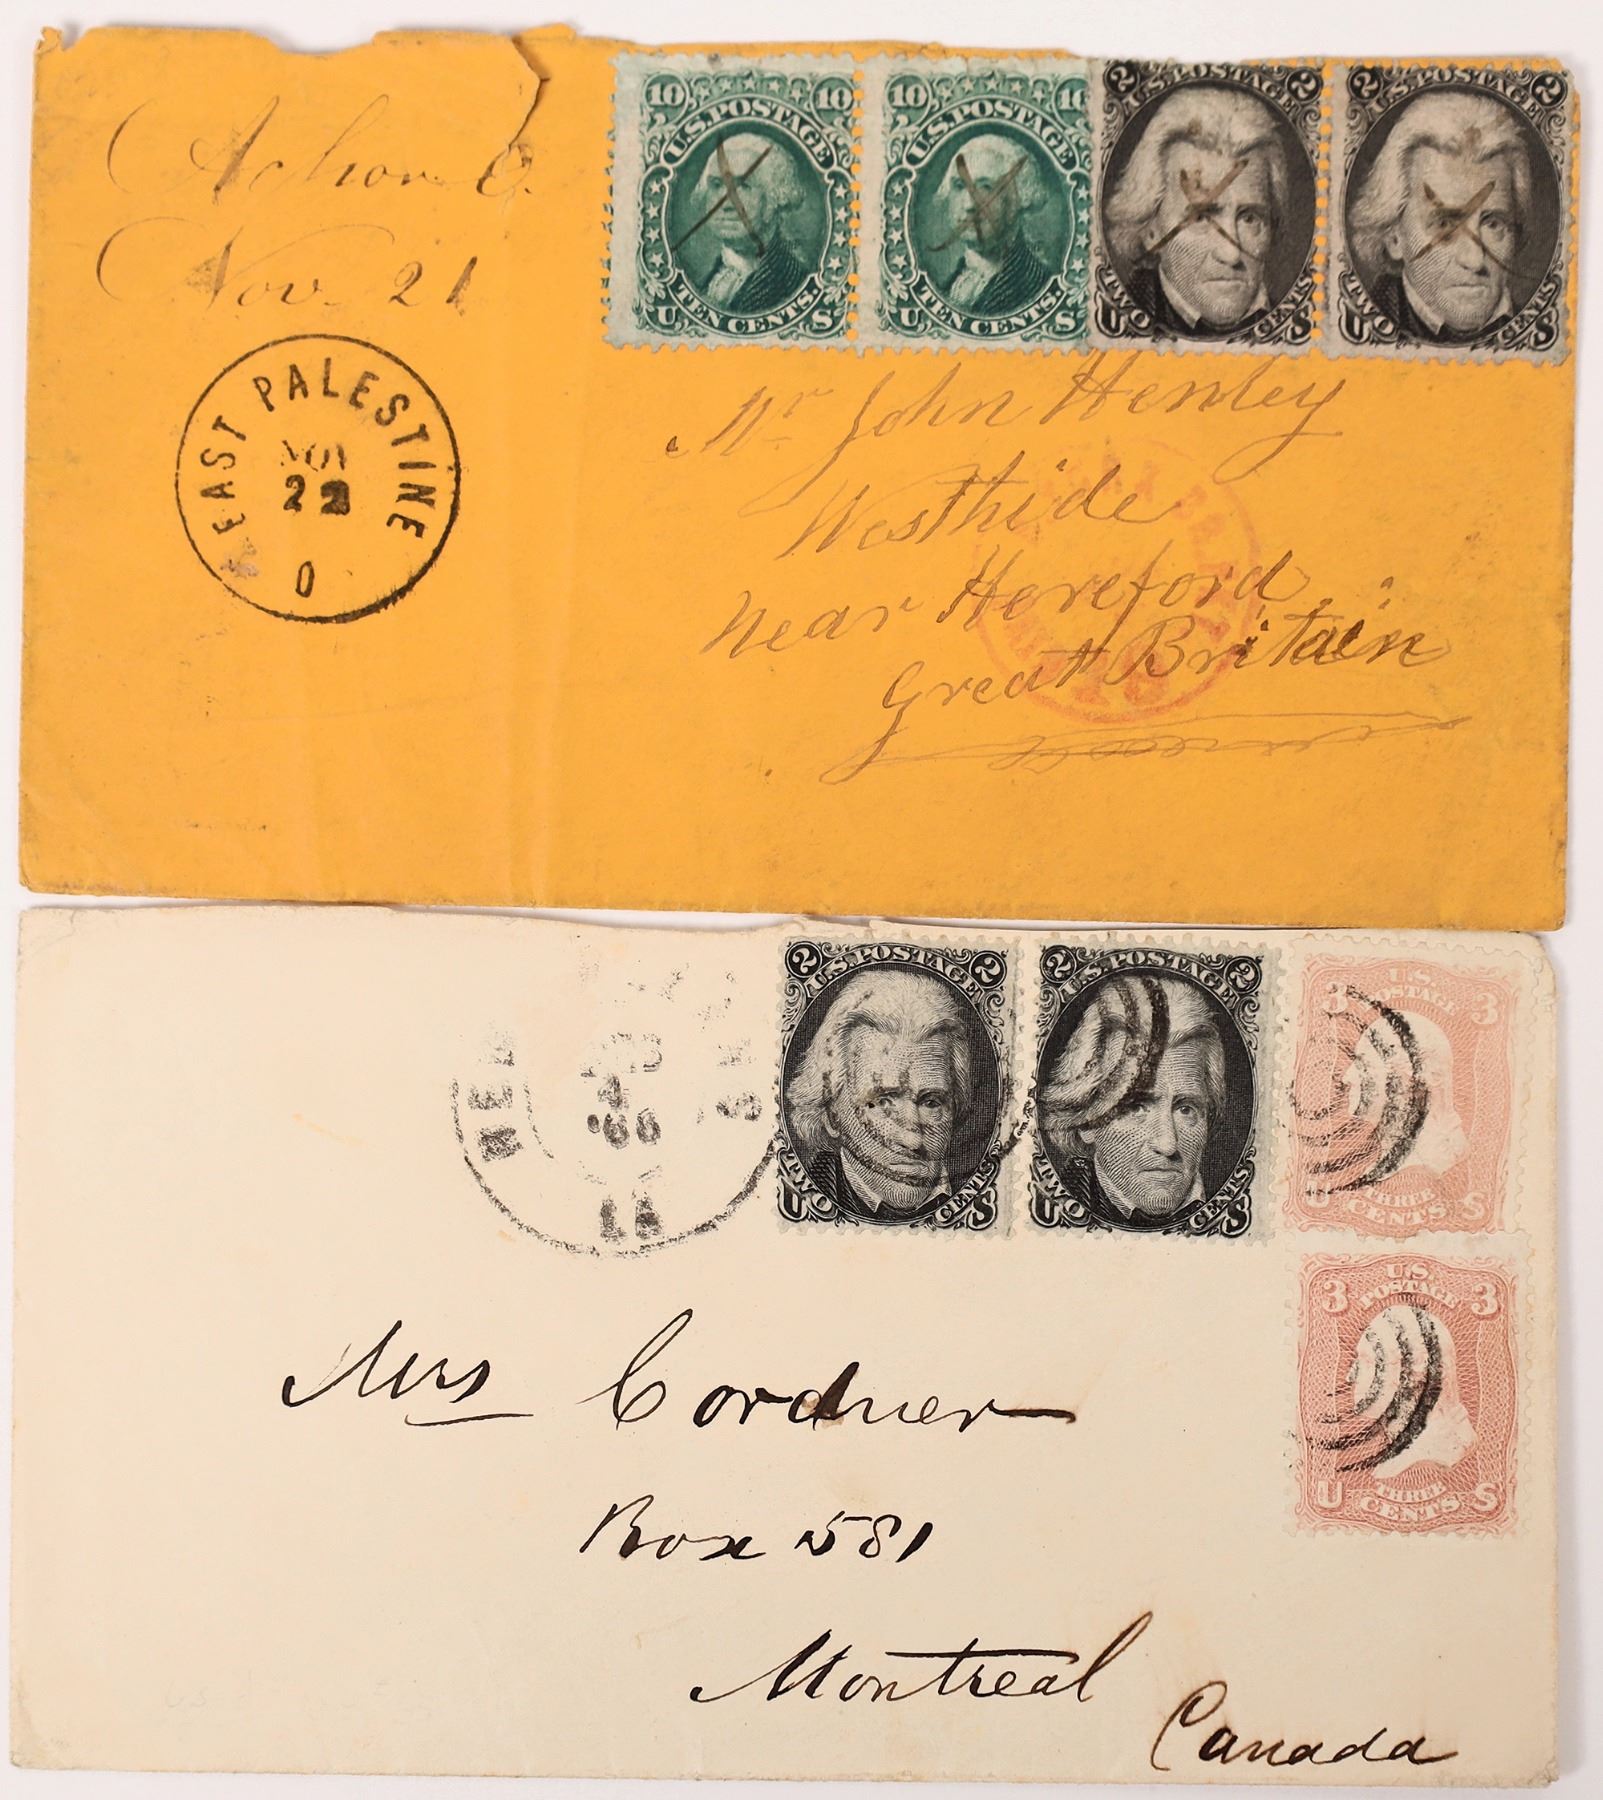 Achor O.
Nov. 21
EAST PALESTINE
NOV
22
O
10 10
U.S. POSTAGE
TEN CENTS.
U S
10 10
U.S. POSTAGE
TEN CENTS.
U S
2 2
U.S. POSTAGE
TWO CENTS
U S
2 2
U.S. POSTAGE
TWO CENTS
U S
Mr John Henley
Westhide
Near Hereford
Great Britain
2 2
U.S. POSTAGE
TWO CENTS
U S
2 2
U.S. POSTAGE
TWO CENTS
U S
U.S.
POSTAGE
3 3
THREE
CENTS
U S
U.S.
POSTAGE
3 3
THREE
CENTS
U S
NEW
'66
Mrs Cordner
Box 581
Montreal
Canada